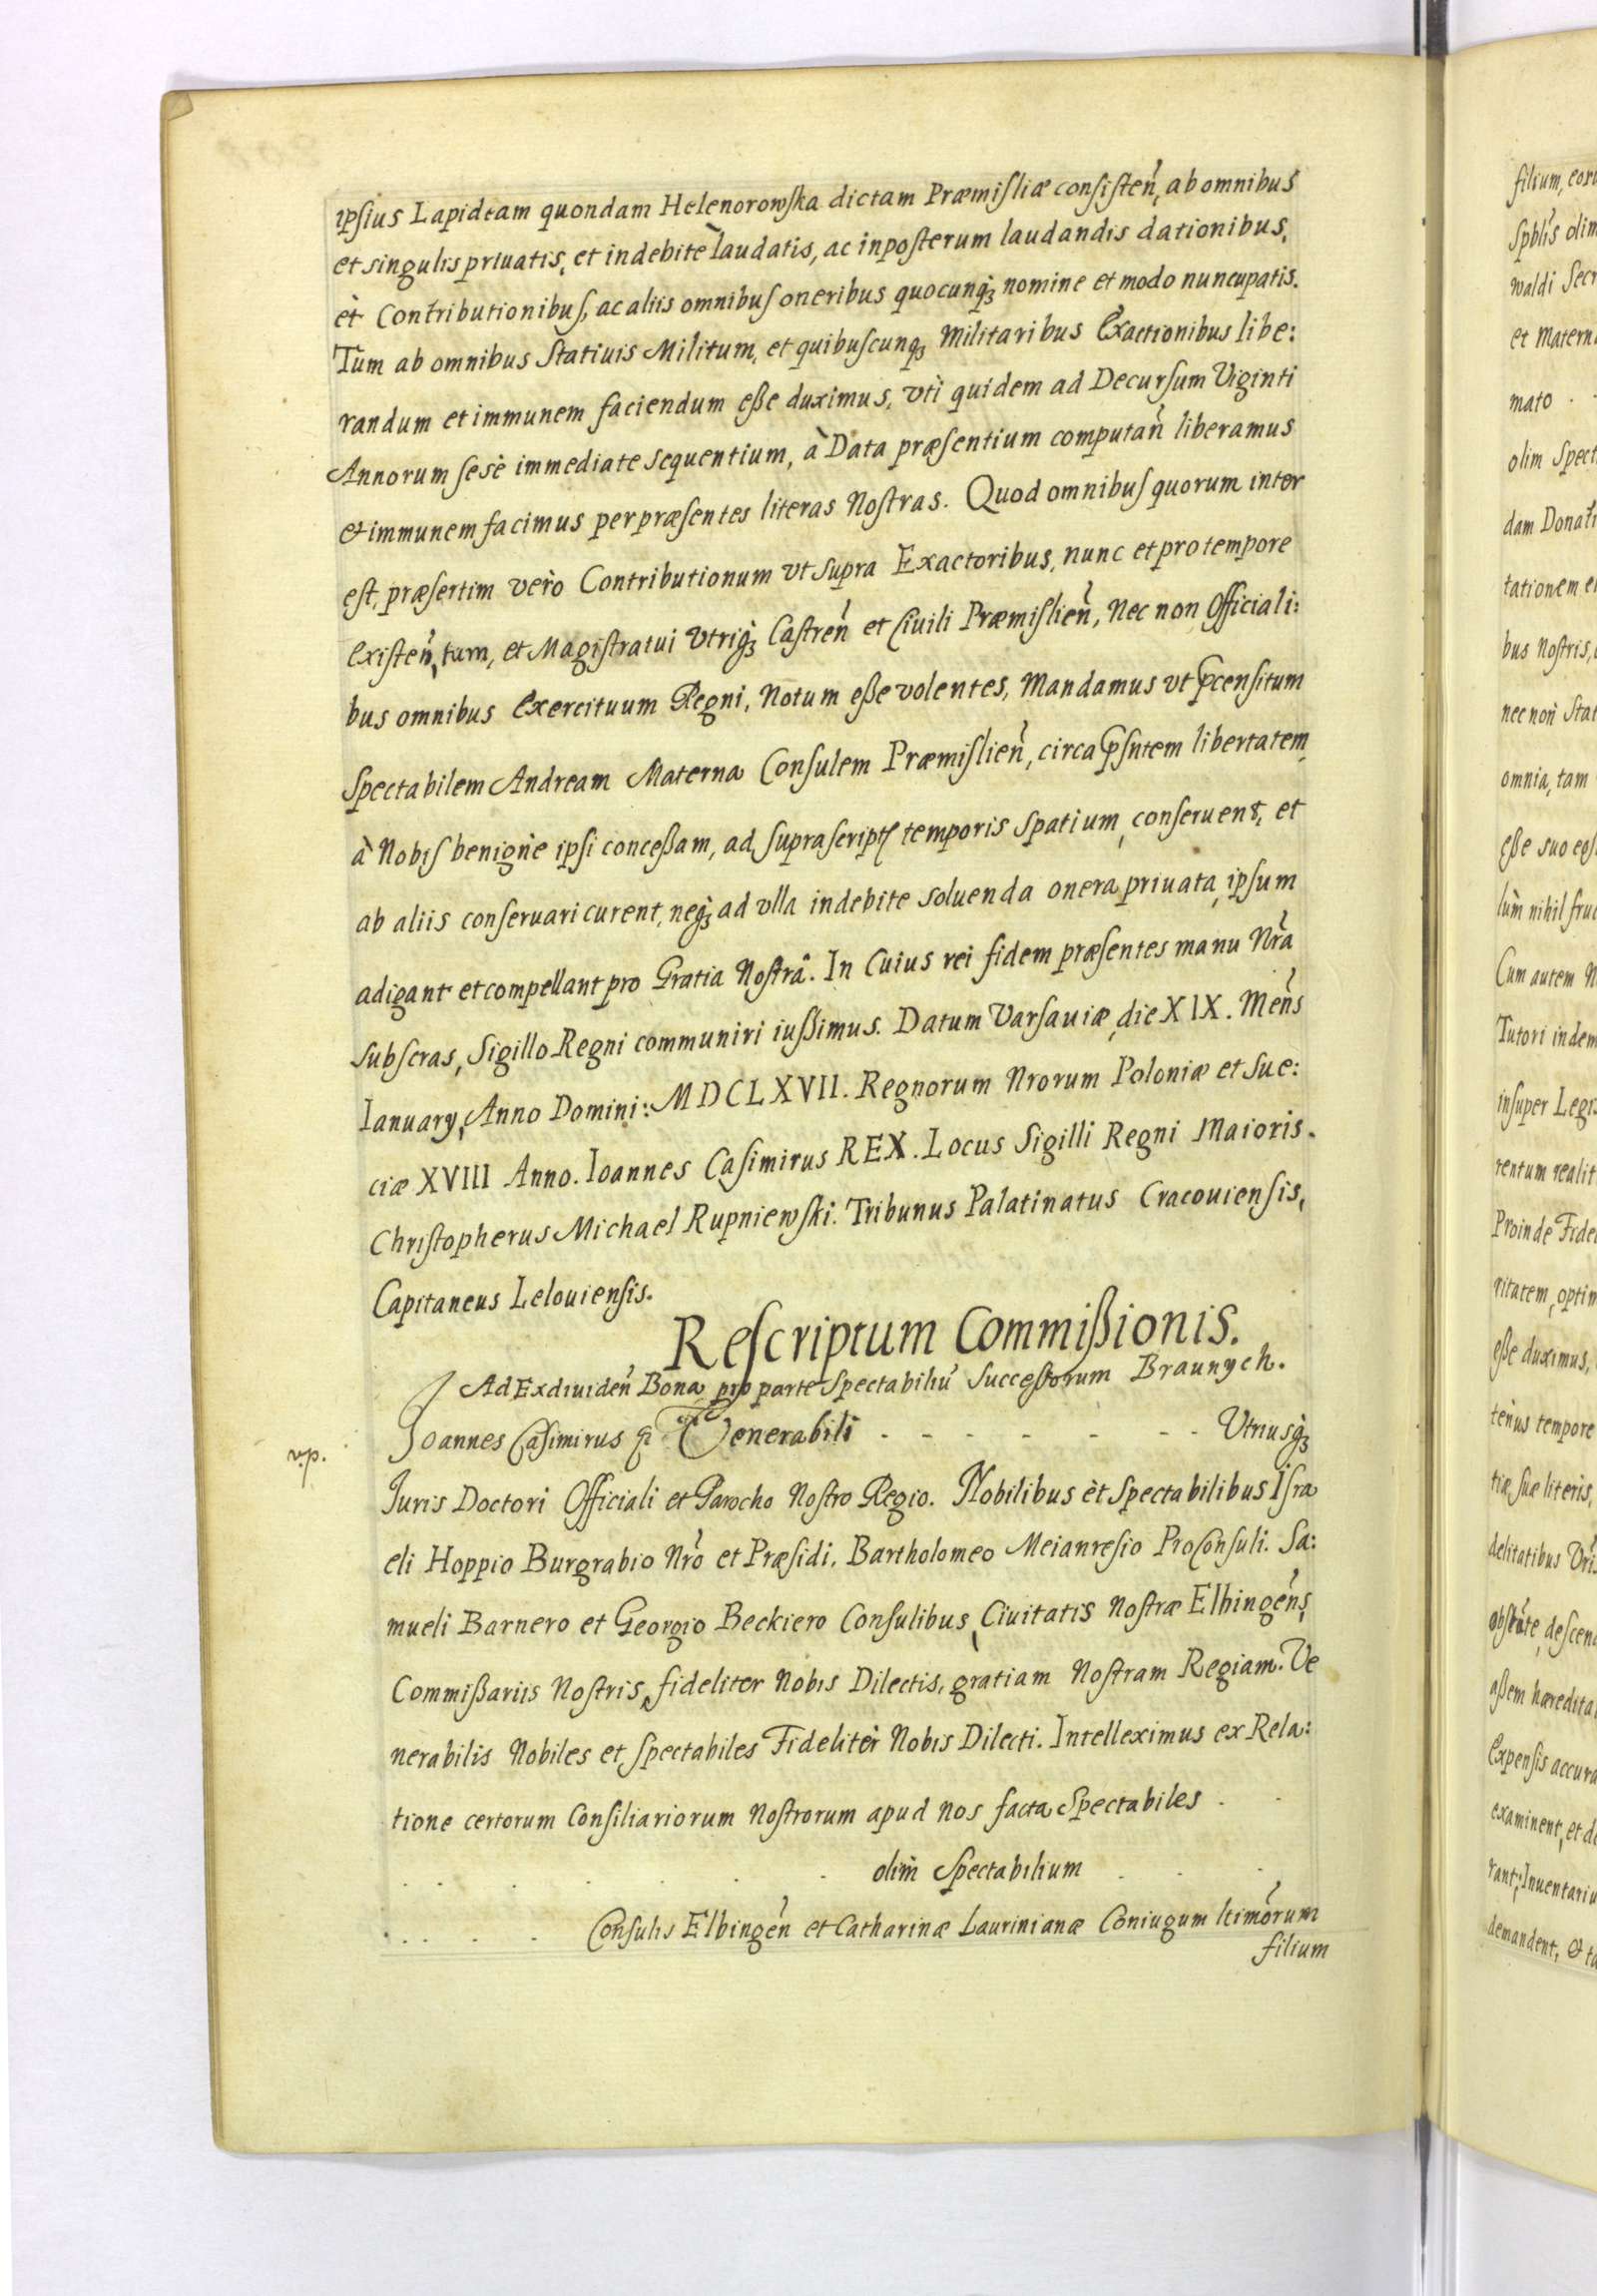 ipsius Lapideam quondam Helenorowska dictam Præmisliæ consisteñ, ab omnibus
et singulis priuatis, et indebitè laudatis, ac inposterum laudandis dationibus,
èt Contributionibus, ac aliis omnibus oneribus quocunq̀ꝫ nomine et modo nuncupatis.
Tum ab omnibus Statiuis Militum, et quibuscunqꝫ Militaribus Exactionibus libe:
randum et immunem faciendum eße duximus, vti quidem ad Decursum Viginti
Annorum sesè immediate sequentium, à Data præsentium computañ liberamus
et immunem facimus per præsentes literas Nostras. Quod omnibus quorum inter
est, præsertim vero Contributionum vt supra Exactoribus, nunc et pro tempore
existeñ, tum, et Magistratui vtriq̀ꝫ Castreñ et Ciuili Præmislieñ, Nec non Officiali:
bus omnibus Exercituum Regni, Notum eße volentes, Mandamus vt p̃censitum
Spectabilem Andream Materna Consulem Præmislieñ, circa p̃sntem libertatem,
à Nobis benignè ipsi conceßam, ad supra scripti temporis spatium, conseruent, et
ab aliis conseruari curent, neq̀ꝫ ad vlla indebite soluenda onera priuata, ipsum
adigant et compellant pro Gratia Nostrâ. In Cuius rei fidem præsentes manu Nr̃a
subscras, Sigillo Regni communiri iußimus. Datum Varsauiæ, die XIX. Meñs
Ianuary, Anno Domini: MDCLXVII. Regnorum Nrorum Poloniæ et Sue:
ciæ XVIII Anno. Ioannes Casimirus REX. Locus Sigilli Regni Maioris.
Christopherus Michael Rupniewski. Tribunus Palatinatus Cracouiensis,
Capitaneus Lelouiensis.
Rescriptum Commißionis.
Ad Exdiuideñ Bona pro parte Spectabiliũ Succeßorum Braunych.
v.p. Joannes Casimirus Venerabili - - - - - - - Vtriusq̀ꝫ
Juris Doctori Officiali et Parocho Nostro Regio. Nobilibus èt Spectabilibus Isra
eli Hoppio Burgrabio Nr̃o et Præsidi, Bartholomeo Meianresio Proconsuli. Sa:
mueli Barnero et Georgio Beckiero Consulibus, Ciuitatis Nostræ Elbingeñs,
Commißariis Nostris, fideliter Nobis Dilectis, gratiam Nostram Regiam. Ve
nerabilis Nobiles et Spectabiles Fideliter Nobis Dilecti. Intelleximus ex Rela:
tione certorum Consiliariorum Nostrorum apud nos facta Spectabiles . .
. . . . . . . olim Spectabilium . . .
. . . . . Consulis Elbingeñ et Catharinæ Laurinianæ Coniugum ltimõrum
filium
filium,
Spblis olim
waldi Secr
et Matern
mato . .
olim Spect
dam Donati
tationem
bus Nostris,
nec non Stat
omnia, tam
eße suo
lum nihil fru
Cum autem
Tutori indem
insuper Legi
rentum realit
Proinde Fide
ritatem, optim
eße duximus,
tenus tempore
tiæ suæ literis,
delitatibus
descen
aßem hæredita
Expensis accura
examinent, et
rant, Inuentariu
demandent, &